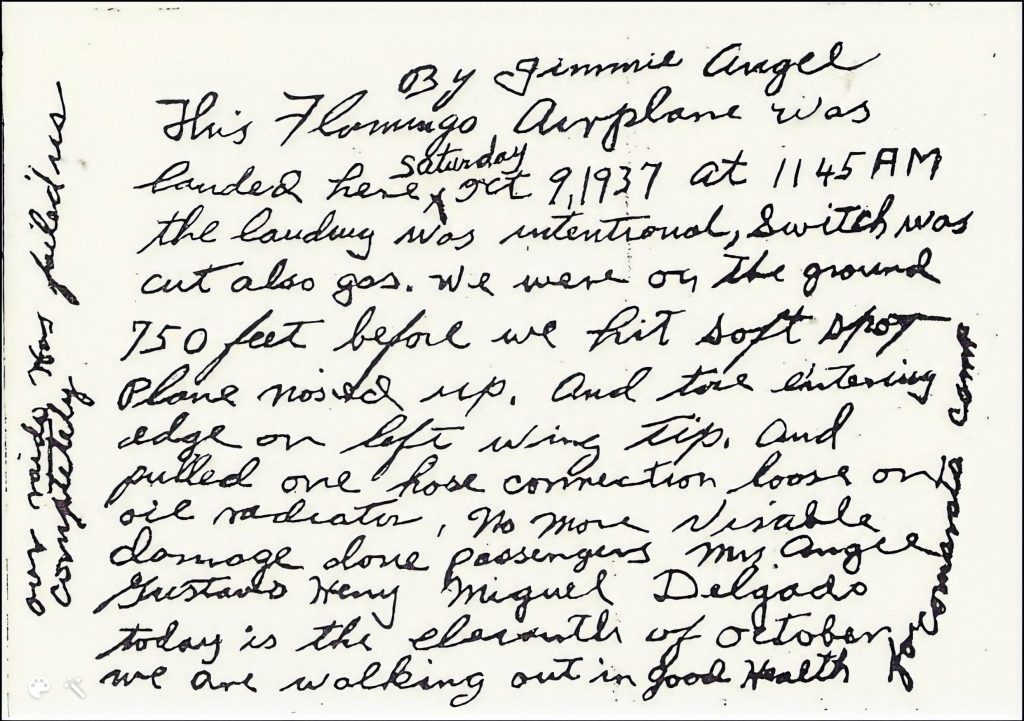 By Jimmie Angel
This Flamingo Airplane was
Saturday
landed here Oct 9, 1937 at 11 45 AM
the landing was intentional, Switch was
cut also gas. we were on the ground
750 feet before we hit soft spot
Plane nosed up. And tore entering
edge on left wing tip. And
pulled one hose connection loose on
oil radiator, No more visable
damage done passengers Mrs Angel
Gustavo Heny Miguel Delgado
today is the eleventh of October
we are walking out in good Health
for comarata camp
our raido Has failed us
completely